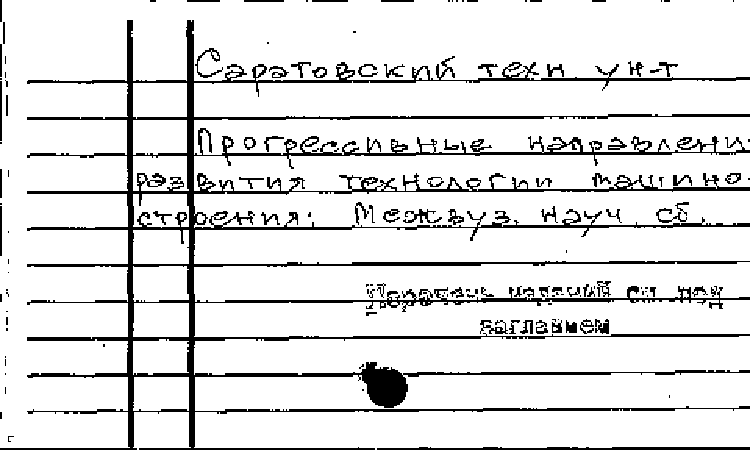 Саратовский техн ун-т
Прогрессивные направлени
развития технологии машино-
строения: Межвуз. науч. сб.
Перечень изданий см. под
заглавием